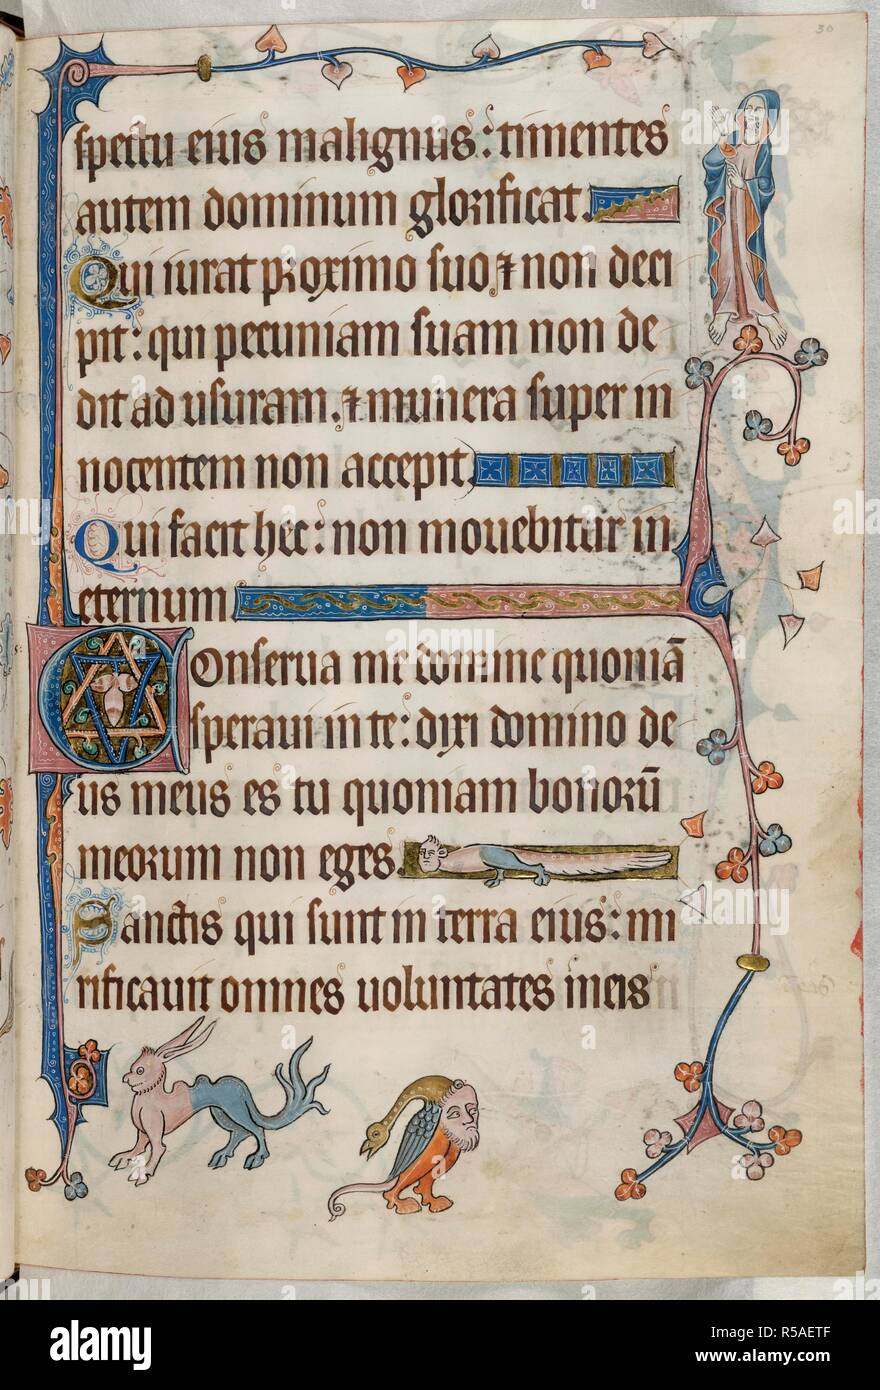 30
spectu eius malignus: timentes
autem dominum glorificat.
Qui iurat proximo suo ⁊ non deci
pit: qui pecuniam suam non de
dit ad usuram. ⁊ munera super in
nocentem non accepit.
Qui facit hec: non mouebitur in
eternum
Conserua me domine quoniā
speraui in te: dixi domino de
us meus es tu quoniam bonorū
meorum non eges.
Sanctis qui sunt in terra eius: mi
rificauit omnes uoluntates in eis
alamy stock photo
R5AETF
www.alamy.com